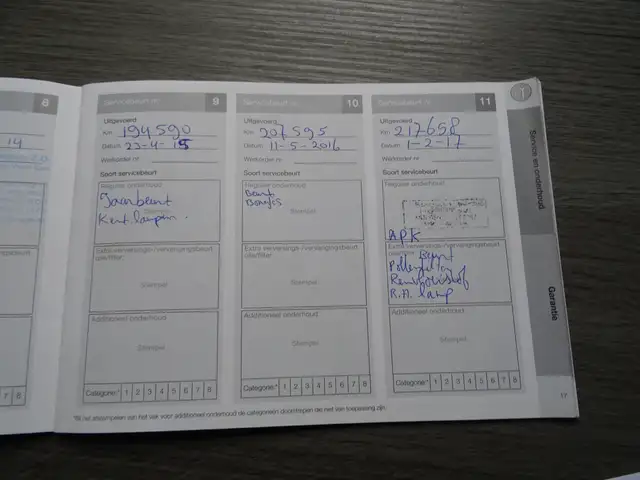 8
14
Servicebeurt nr. 9
Uitgevoerd
Km 194590
Datum 23-4-15
Werkorder nr
Soort servicebeurt
Regulier onderhoud
Jaarbeurt
Stempel
Kent. lampen.
Extra verversings-/vervangingsbeurt
olie/filter
Stempel
Additioneel onderhoud
Stempel
Categorie:* 1 2 3 4 5 6 7 8
Servicebeurt nr. 10
Uitgevoerd
Km 207595
Datum 11-5-2016
Werkorder nr
Soort servicebeurt
Regulier onderhoud
Beurt
Bougies
Stempel
Extra verversings-/vervangingsbeurt
olie/filter
Stempel
Additioneel onderhoud
Stempel
Categorie:* 1 2 3 4 5 6 7 8
Servicebeurt nr. 11
Uitgevoerd
Km 217658
Datum 1-2-17
Werkorder nr
Soort servicebeurt
Regulier onderhoud
APK
Extra verversings-/vervangingsbeurt
Beurt
Pollenfilter
Remvloeistof
R.A. lamp
Additioneel onderhoud
Stempel
Categorie:* 1 2 3 4 5 6 7 8
*Bij het afstempelen van het vak voor additioneel onderhoud de categorieën doorstrepen die niet van toepassing zijn.
i
Service en onderhoud
Garantie
17